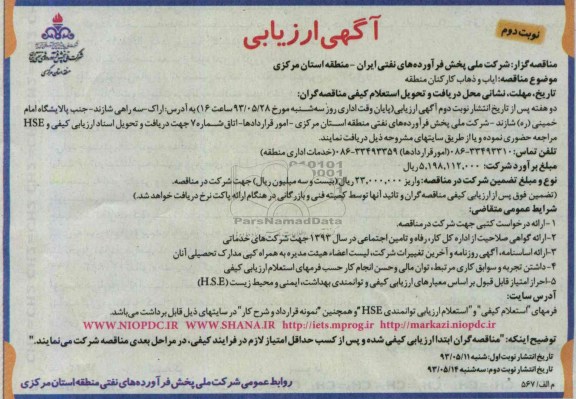 نوبت دوم
آگهی ارزیابی
شرکت ملی پخش فرآورده‌های نفتی ایران
منطقه استان مرکزی
مناقصه گزار: شرکت ملی پخش فرآورده‌های نفتی ایران - منطقه استان مرکزی
موضوع مناقصه: ایاب و ذهاب کارکنان منطقه
تاریخ، مهلت، نشانی محل دریافت و تحویل استعلام کیفی مناقصه گران:
دو هفته پس از تاریخ انتشار نوبت دوم آگهی ارزیابی(پایان وقت اداری روز سه‌شنبه مورخ ۹۳/۰۵/۲۸ ساعت ۱۶) به آدرس: اراک-سه راهی شازند-جنب پالایشگاه امام
خمینی (ره) شازند - شرکت ملی پخش فرآورده‌های نفتی منطقه استان مرکزی - امور قراردادها- اتاق شماره ۷ جهت دریافت و تحویل اسناد ارزیابی کیفی و HSE
مراجعه حضوری نموده و یا از طریق سایتهای مشروحه ذیل دریافت نمایند.
تلفن تماس: ۳۳۴۹۳۳۱۰-۰۸۶(امور قراردادها) ۳۳۴۹۳۳۵۹-۰۸۶(خدمات اداری منطقه)
مبلغ برآورد شرکت: ۵,۱۹۸,۱۱۲,۰۰۰ ریال
نوع و مبلغ تضمین شرکت در مناقصه: واریز ۲۳,۰۰۰,۰۰۰ ریال(بیست و سه میلیون ریال) جهت شرکت در مناقصه.
(تضمین فوق پس از ارزیابی کیفی مناقصه گران و تائید آنها توسط کمیته فنی و بازرگانی در هنگام ارائه پاکت نرخ دریافت خواهد شد.)
ParsNamadData
شرایط عمومی متقاضی:
۱-ارائه درخواست کتبی جهت شرکت در مناقصه.
۲-ارائه گواهی صلاحیت از اداره کل کار، رفاه و تامین اجتماعی در سال ۱۳۹۳ جهت شرکت‌های خدماتی
۳-ارائه اساسنامه، آگهی روزنامه و آخرین تغییرات شرکت، لیست اعضاء هیئت مدیره به همراه کپی مدارک تحصیلی آنان
۴- داشتن تجربه و سوابق کاری مرتبط، توان مالی و حسن انجام کار حسب فرمهای استعلام ارزیابی کیفی
۵-احراز امتیاز قابل قبول بر اساس معیارهای ارزیابی کیفی و توانمندی بهداشت، ایمنی و محیط زیست (H.S.E)
آدرس سایت:
فرمهای "استعلام کیفی" و "استعلام ارزیابی توانمندی HSE" و همچنین "نمونه قرارداد و شرح کار" در سایتهای ذیل قابل برداشت می‌باشد.
WWW.NIOPDC.IR WWW.SHANA.IR http://iets.mprog.ir http://markazi.niopdc.ir
توضیح اینکه: "مناقصه گران ابتدا ارزیابی کیفی شده و پس از کسب حداقل امتیاز لازم در فرایند کیفی، در مراحل بعدی مناقصه شرکت می‌نمایند."
تاریخ انتشار نوبت اول: شنبه ۹۳/۰۵/۱۱
تاریخ انتشار نوبت دوم: سه‌شنبه ۹۳/۰۵/۱۴
م الف/ ۵۶۷
روابط عمومی شرکت ملی پخش فرآورده‌های نفتی منطقه استان مرکزی